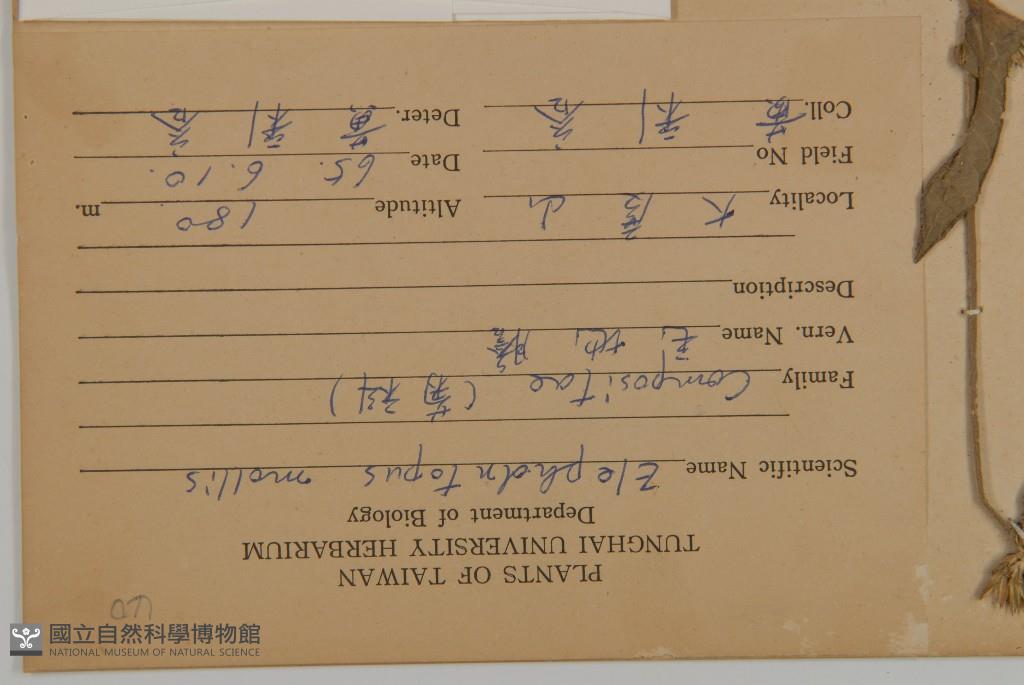 PLANTS OF TAIWAN
TUNGHAI UNIVERSITY HERBARIUM
Department of Biology
Scientific Name Elephantopus mollis
Family Compositae (菊科)
Vern. Name 毛地膽
Description
Locality 大度山 Altitude 180 m.
Field No Date 65. 6. 10.
Coll. 黃 利 Deter. 黃 利
國立自然科學博物館
NATIONAL MUSEUM OF NATURAL SCIENCE